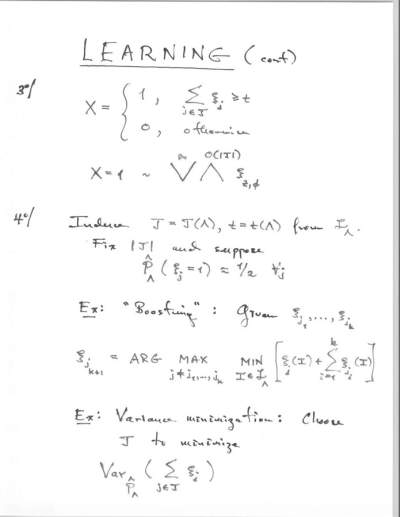 LEARNING (cont)
3°/ X = { 1, Σ_{j∈J} ξ_j ≥ t
0, otherwise
X=1 ~ ∨^∞ ∧^{O(|J|)} ξ_{z,φ}
4°/ Induce J = J(Λ), t = t(Λ) from 𝓘_Λ.
Fix |J| and suppose
P̂_Λ (ξ_j = 1) ≈ 1/2 ∀j
Ex: "Boosting": Given ξ_{j_1},...,ξ_{j_k}
ξ_{j_{k+1}} = ARG MAX_{j≠j_1,...,j_k} MIN_{I∈𝓘_Λ} [ξ_j(I) + Σ_{i=1}^{k} ξ_{j_i}(I)]
Ex: Variance minimization: Choose
J to minimize
Var_{P̂_Λ} (Σ_{j∈J} ξ_j)